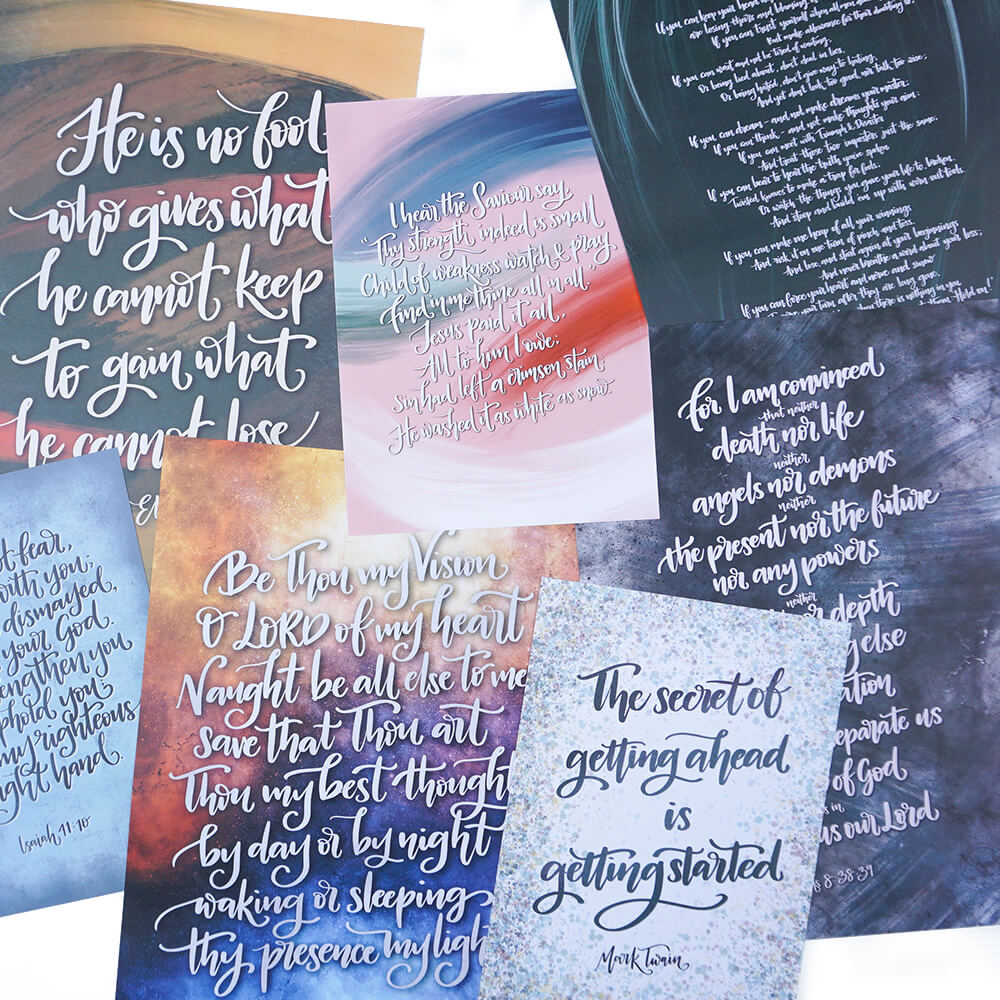 He is no fool
who gives what
he cannot keep
to gain what
he cannot lose
I hear the Saviour say,
"Thy strength, indeed is small
Child of weakness watch & pray
Find in me thine all in all"
Jesus paid it all,
All to him I owe;
Sin had left a crimson stain;
He washed it as white as snow.
If you can keep your head
are losing theirs and blaming
If you can trust yourself when all men doubt
But make allowance for their doubting too.
If you can wait and not be tired of waiting,
Or being lied about, don't deal in lies,
Or being hated, don't give way to hating,
And yet don't look too good, nor talk too wise;
If you can dream - and not make dreams your master;
If you can think - and not make thoughts your aim;
If you can meet with Triumph & Disaster
And treat those two imposters just the same;
If you can bear to hear the truth you've spoken
Twisted by knaves to make a trap for fools,
Or watch the things you gave your life to broken,
And stoop and build em up with worn out tools.
If you can make one heap of all your winnings
And risk it on one turn of pitch and toss,
And lose, and start again at your beginnings
And never breathe a word about your loss;
If you can force your heart and nerve and sinew
your turn long after they are gone,
there is nothing in you
"Hold on!"
For I am convinced
that neither
death nor life
neither
angels nor demons
neither
the present nor the future
nor any powers
neither
depth
else
ation
eparate us
of God
is in
us our Lord
8:38-39
t fear,
with you;
dismayed,
your God.
rengthen you
phold you;
my righteous
ght hand.
Isaiah 41:10
Be Thou my Vision
O LORD of my heart
Naught be all else to me
save that Thou art
Thou my best thought
by day or by night
waking or sleeping
thy presence my ligh
The secret of
getting ahead
is
getting started
Mark Twain